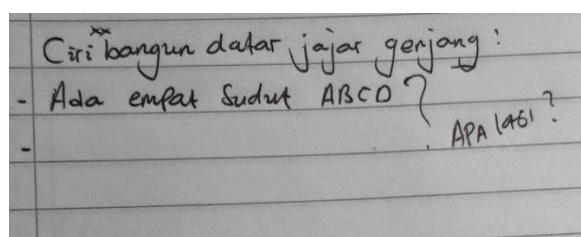 Ciri bangun datar jajar genjang :
- Ada empat Sudut ABCD ?
- APA lagi ?